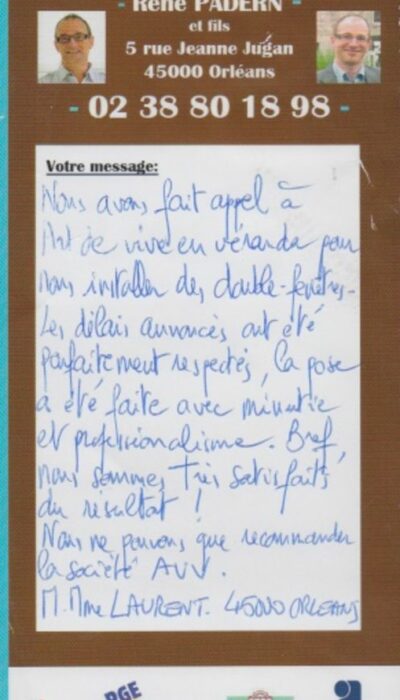 - René PADERN -
et fils
5 rue Jeanne Jugan
45000 Orléans
- 02 38 80 18 98 -
Votre message:
Nous avons fait appel à
l'Art de vivre en véranda pour
nous installer des double-fenêtres.
Les délais annoncés ont été
parfaitement respectés, la pose
a été faite avec minutie
et professionalisme. Bref,
nous sommes très satisfaits
du résultat !
Nous ne pouvons que recommander
la société AVV.
M. Mme LAURENT. 45000 ORLEANS
RGE